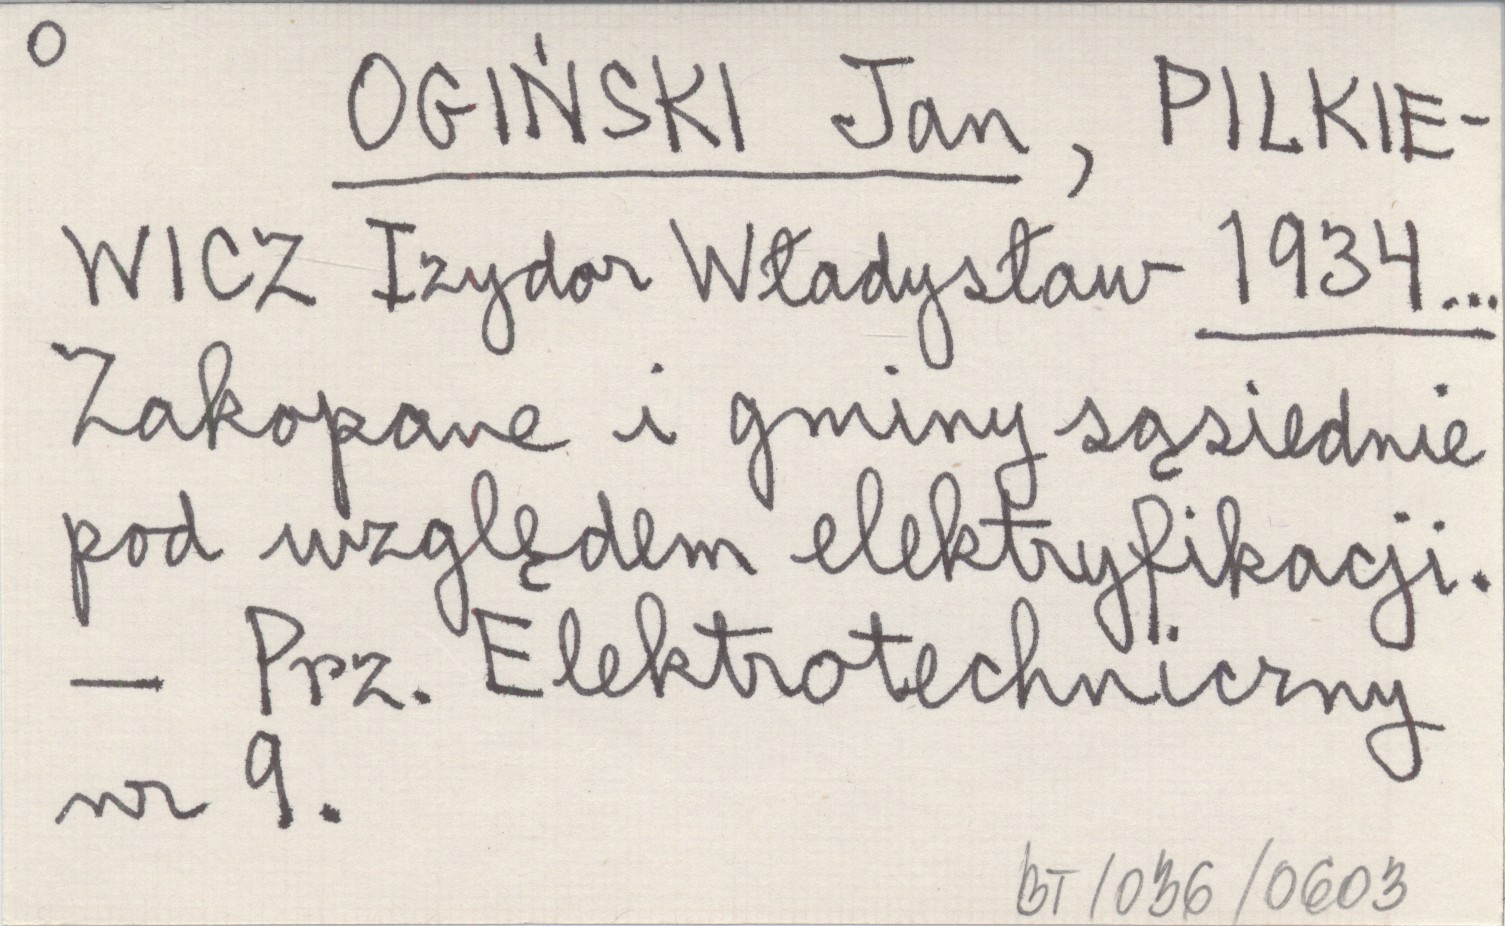 O
OGIŃSKI Jan, PILKIE-
WICZ Izydor Władysław 1934...
Zakopane i gminy sąsiednie
pod względem elektryfikacji.
— Prz. Elektrotechniczny
nr 9.
BT/036/0603